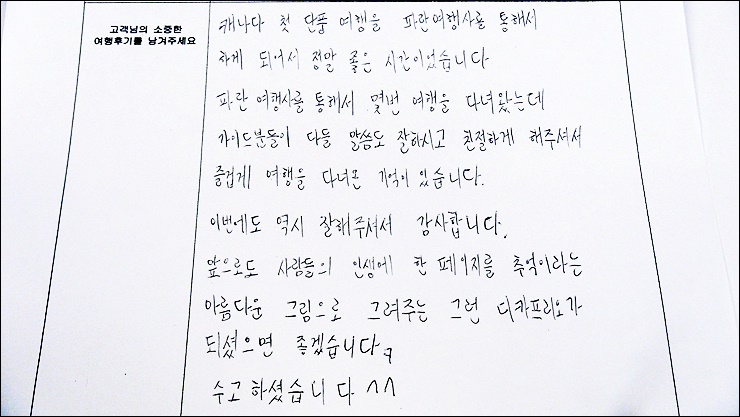 고객님의 소중한
여행후기를 남겨주세요
캐나다 첫 단풍 여행을 파란여행사를 통해서
하게 되어서 정말 좋은 시간이었습니다
파란 여행사를 통해서 몇번 여행을 다녀왔는데
가이드분들이 다들 말씀도 잘하시고 친절하게 해주셔서
즐겁게 여행을 다녀온 기억이 있습니다.
이번에도 역시 잘해주셔서 감사합니다.
앞으로도 사람들의 인생에 한 페이지를 추억이라는
아름다운 그림으로 그려주는 그런 디카프리오가
되셨으면 좋겠습니다
수고하셨습니다 ^^